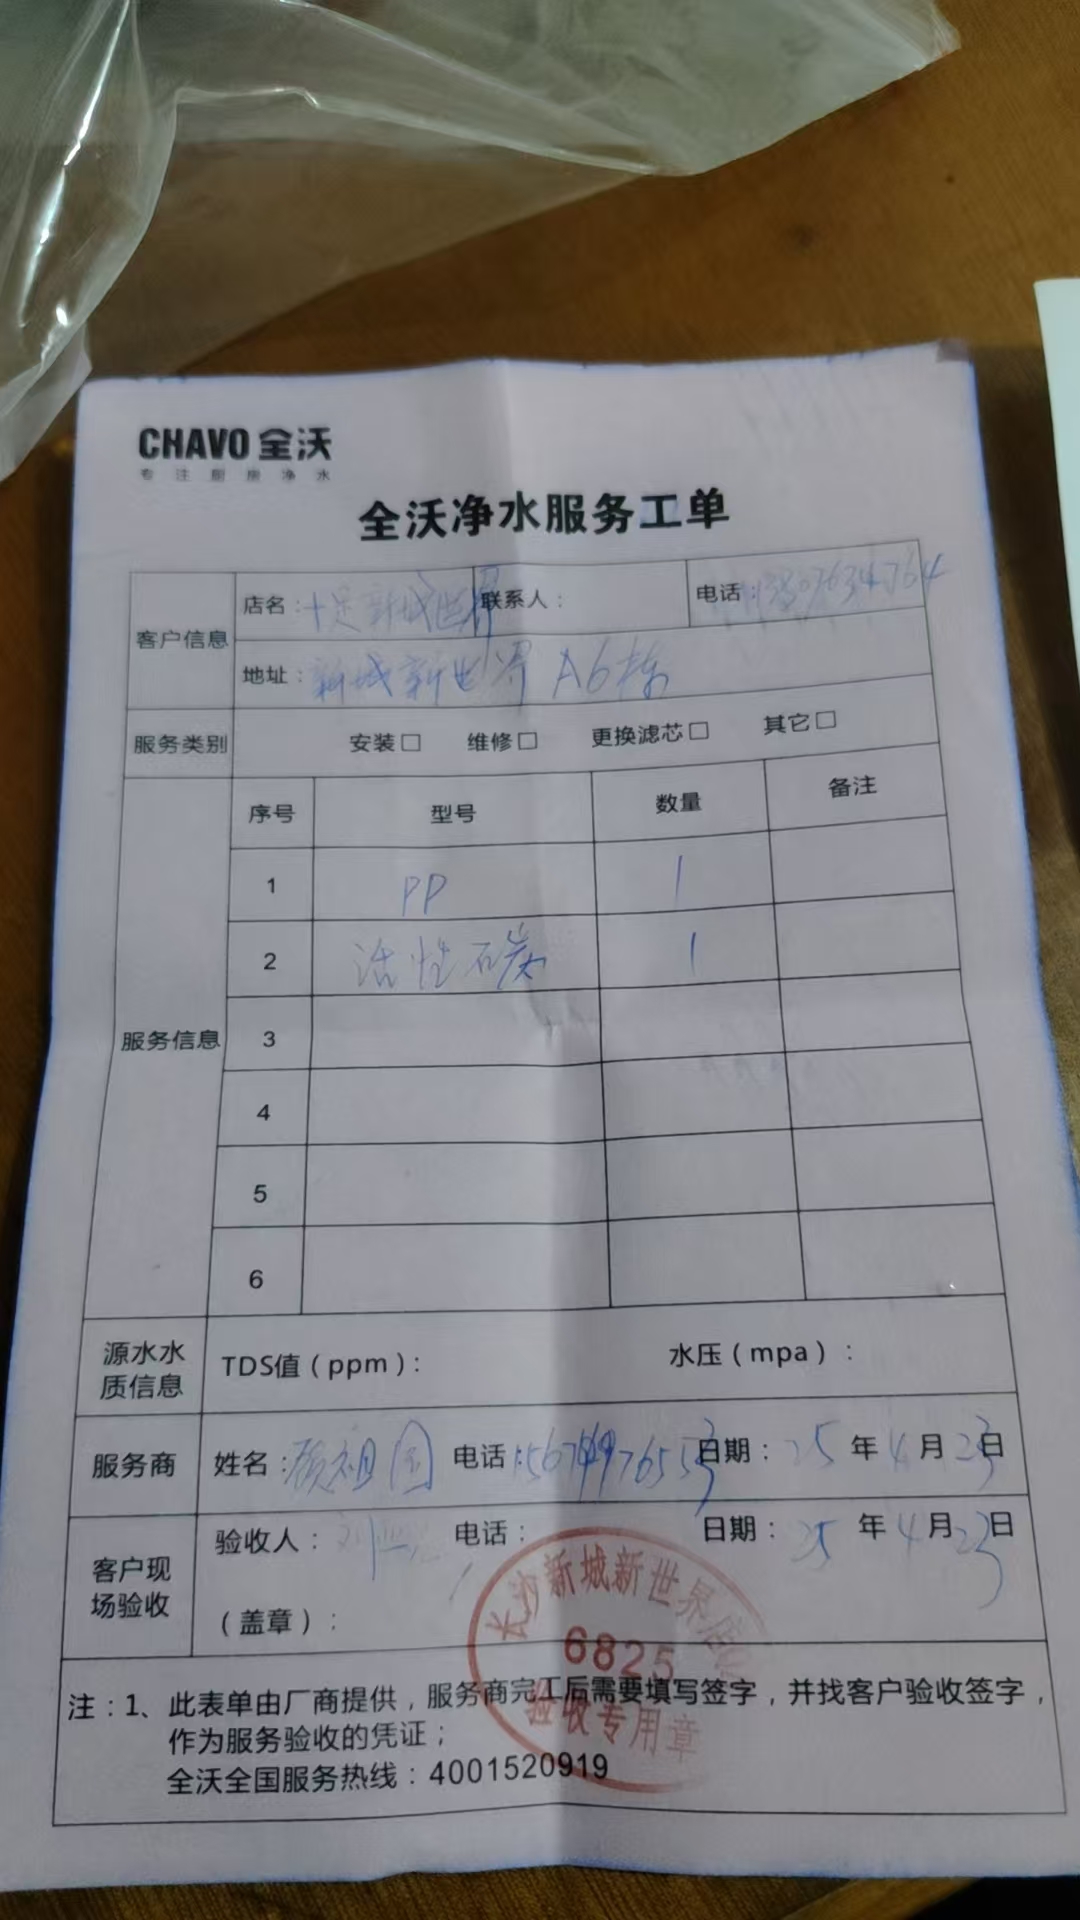 CHAVO 全沃
专注厨房净水
全沃净水服务工单
客户信息
店名：新城世界 联系人： 电话：
地址：新城新世界 A6栋
服务类别 安装□ 维修□ 更换滤芯□ 其它□
服务信息
序号 型号 数量 备注
1 PP 1
2 活性石炭 1
3
4
5
6
源水水质信息 TDS值（ppm）： 水压（mpa）：
服务商 姓名：颜祖国 电话： 日期：25 年 4 月 23日
客户现场验收
验收人： 电话： 日期：25 年 4 月 23日
（盖章）：
长沙新城新世界店
6825
验收专用章
注：1、此表单由厂商提供，服务商完工后需要填写签字，并找客户验收签字，
作为服务验收的凭证；
全沃全国服务热线：4001520919